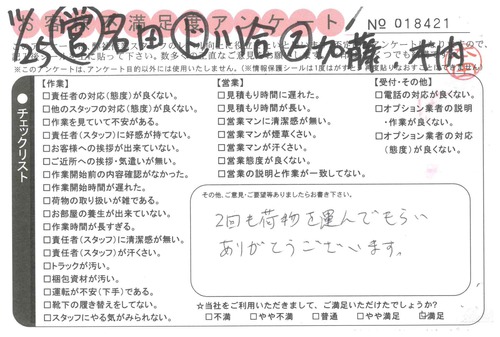 お客様不満足度アンケート
No 018421
11/25 営 名田 ド 川合 ヱ 加藤 木内
※このアンケートは、アンケート目的以外には使用いたしません。
チェックリスト
【作業】
□責任者の対応(態度)が良くない。
□他のスタッフの対応(態度)が良くない。
□作業を見ていて不安がある。
□責任者(スタッフ)に好感が持てない。
□お客様への挨拶が出来ていない。
□ご近所への挨拶・気遣いが無い。
□作業開始前の内容確認がなかった。
□作業開始時間が遅れた。
□荷物の取り扱いが雑である。
□お部屋の養生が出来ていない。
□作業時間が長すぎる。
□責任者(スタッフ)に清潔感が無い。
□責任者(スタッフ)が汗くさい。
□トラックが汚い。
□梱包資材が汚い。
□運転が不安(下手)である。
□靴下の履き替えをしてない。
□スタッフにやる気がみられない。
【営業】
□見積もり時間に遅れた。
□見積もり時間が長い。
□営業マンに清潔感が無い。
□営業マンが煙草くさい。
□営業マンが汗くさい。
□営業態度が良くない。
□営業の説明と作業が一致してない。
【受付・その他】
□電話の対応が良くない。
□オプション業者の説明
・作業が良くない。
□オプション業者の対応
(態度)が良くない。
その他、ご意見・ご要望等ありましたらお書き下さい。
2回も荷物を運んでもらい
ありがとうございます。
☆当社をご利用いただきまして、ご満足いただけたでしょうか?
□不満 □やや不満 □普通 □やや満足 ☑満足